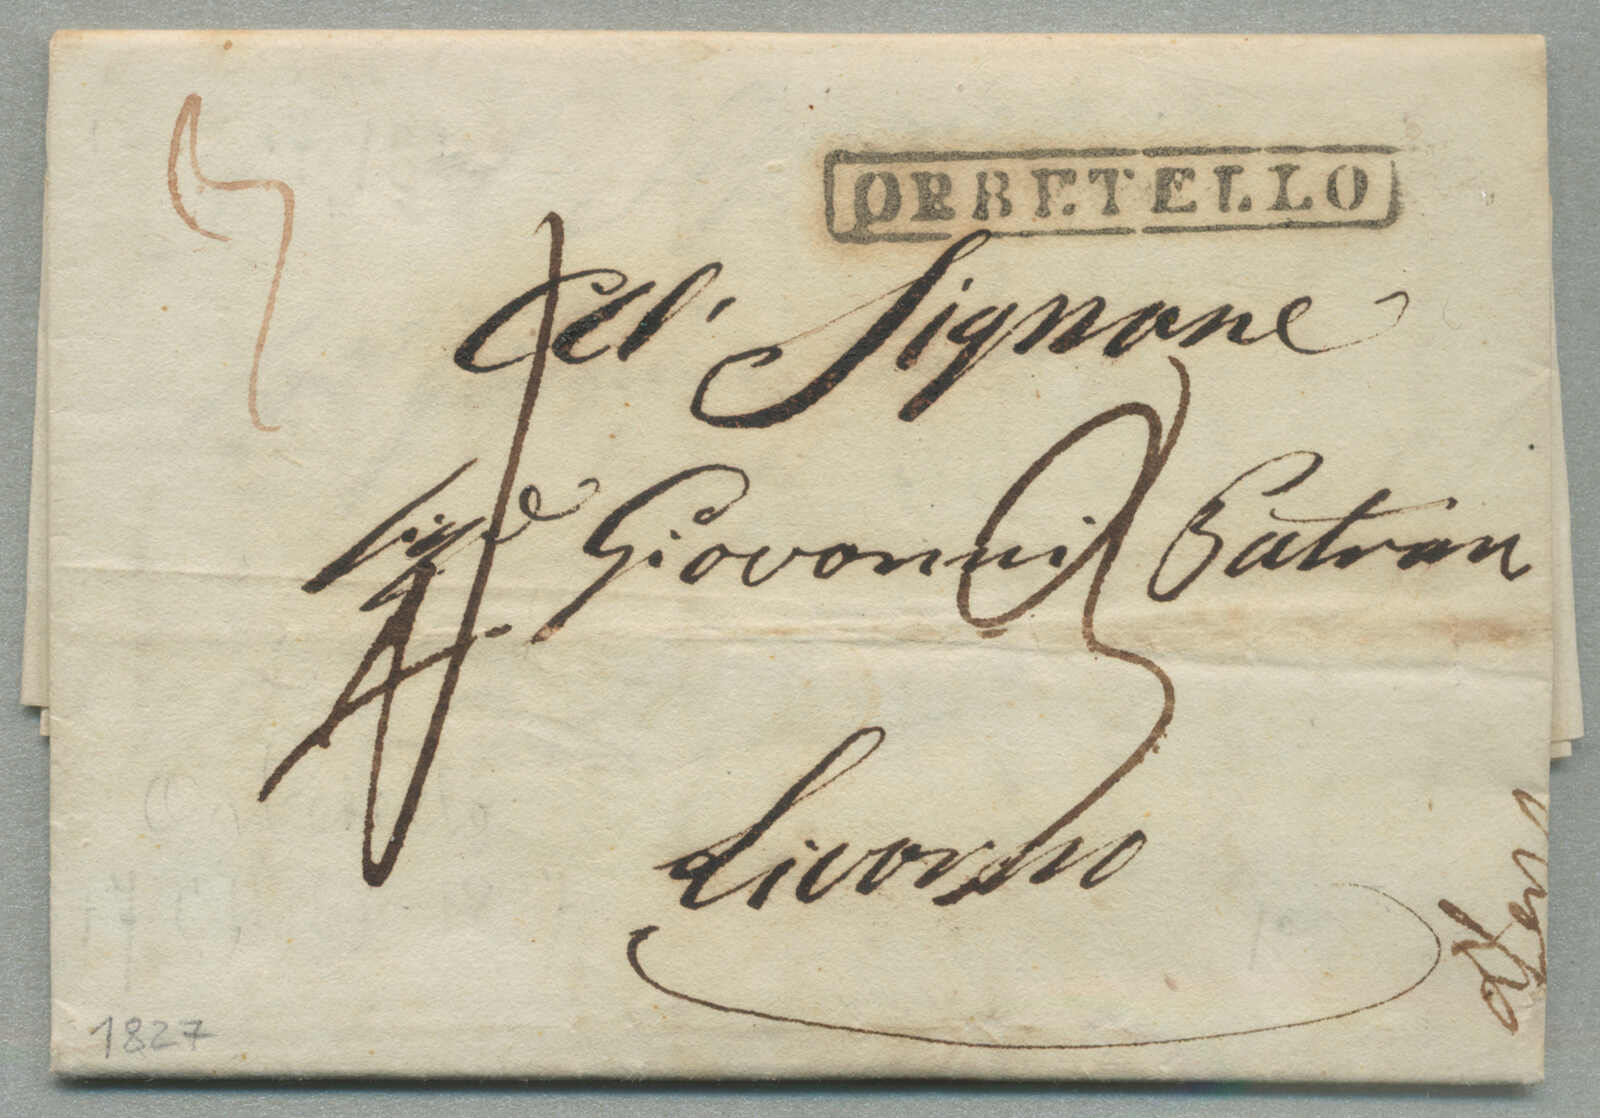 ORBETELLO
Al Signore
Sig.e Giovanni Patran
Livorno
1827